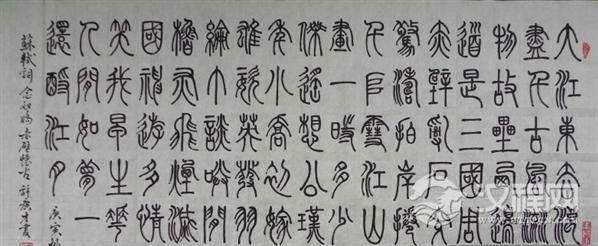 大江東去浪
盡千古風流
物故壘西邊
道是三國周
赤壁亂石穿
驚濤拍岸捲
千堆雪江山
畫一時多少
傑遙想公瑾
年小喬初嫁
雄姿英發羽
綸巾談笑間
櫓灰飛煙滅
國神遊多情
笑我早生華
人間如夢一
還酹江月
庚寅秋
蘇軾詞念奴嬌赤壁懷古
文程网